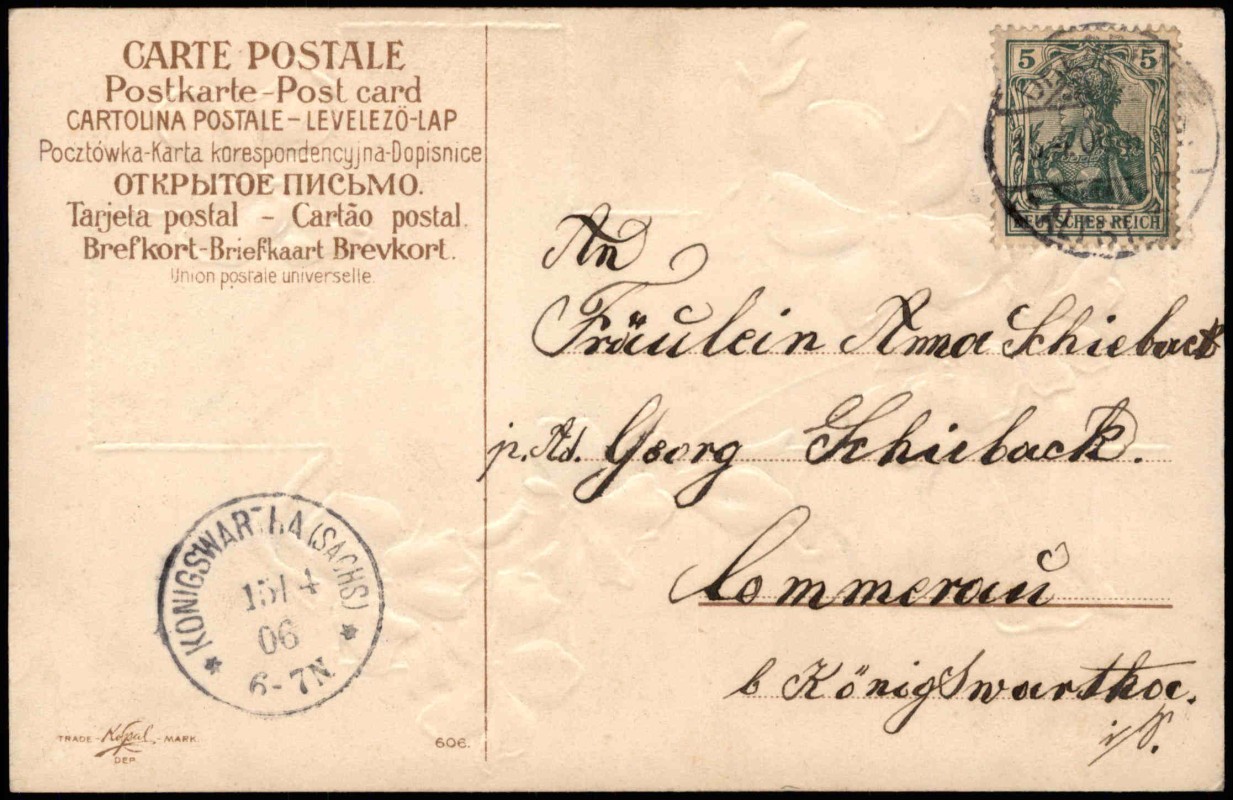 CARTE POSTALE
Postkarte-Post card
CARTOLINA POSTALE-LEVELEZÖ-LAP
Pocztówka-Karta korespondencyjna-Dopisnice
ОТКРЫТОЕ ПИСЬМО.
Tarjeta postal - Cartão postal.
Brefkort-Briefkaart Brevkort.
Union postale universelle.
5 5
DEUTSCHES REICH
An
Fräulein Anna Schieback
p. Ad. Georg Schieback.
Commerau
b Königswartha.
i/S.
KÖNIGSWARTHA (SACHS)
15/4
06
6-7N
TRADE - Kopal - MARK
DEP.
606.